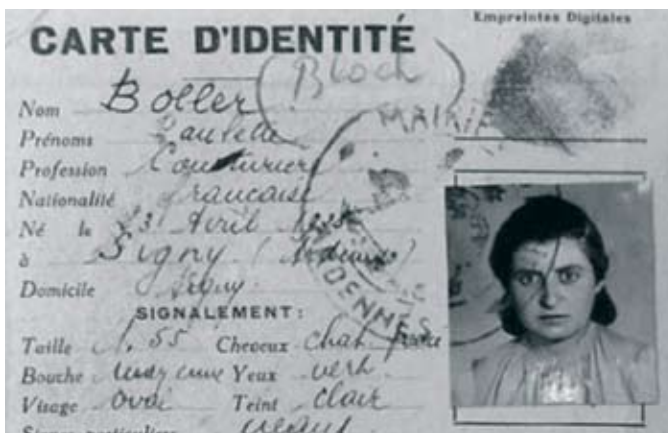 Empreintes Digitales
CARTE D'IDENTITÉ
(Bloch)
Nom Boller
MAIRIE
Prénoms Paulette
Profession Couturière
Nationalité française
Né le 23 Avril
à Signy (Ardennes)
ARDENNES
Domicile Signy
SIGNALEMENT:
Taille 1.55 Cheveux chat
Bouche moyenne Yeux vert
Visage Oval Teint Clair
Signes particuliers